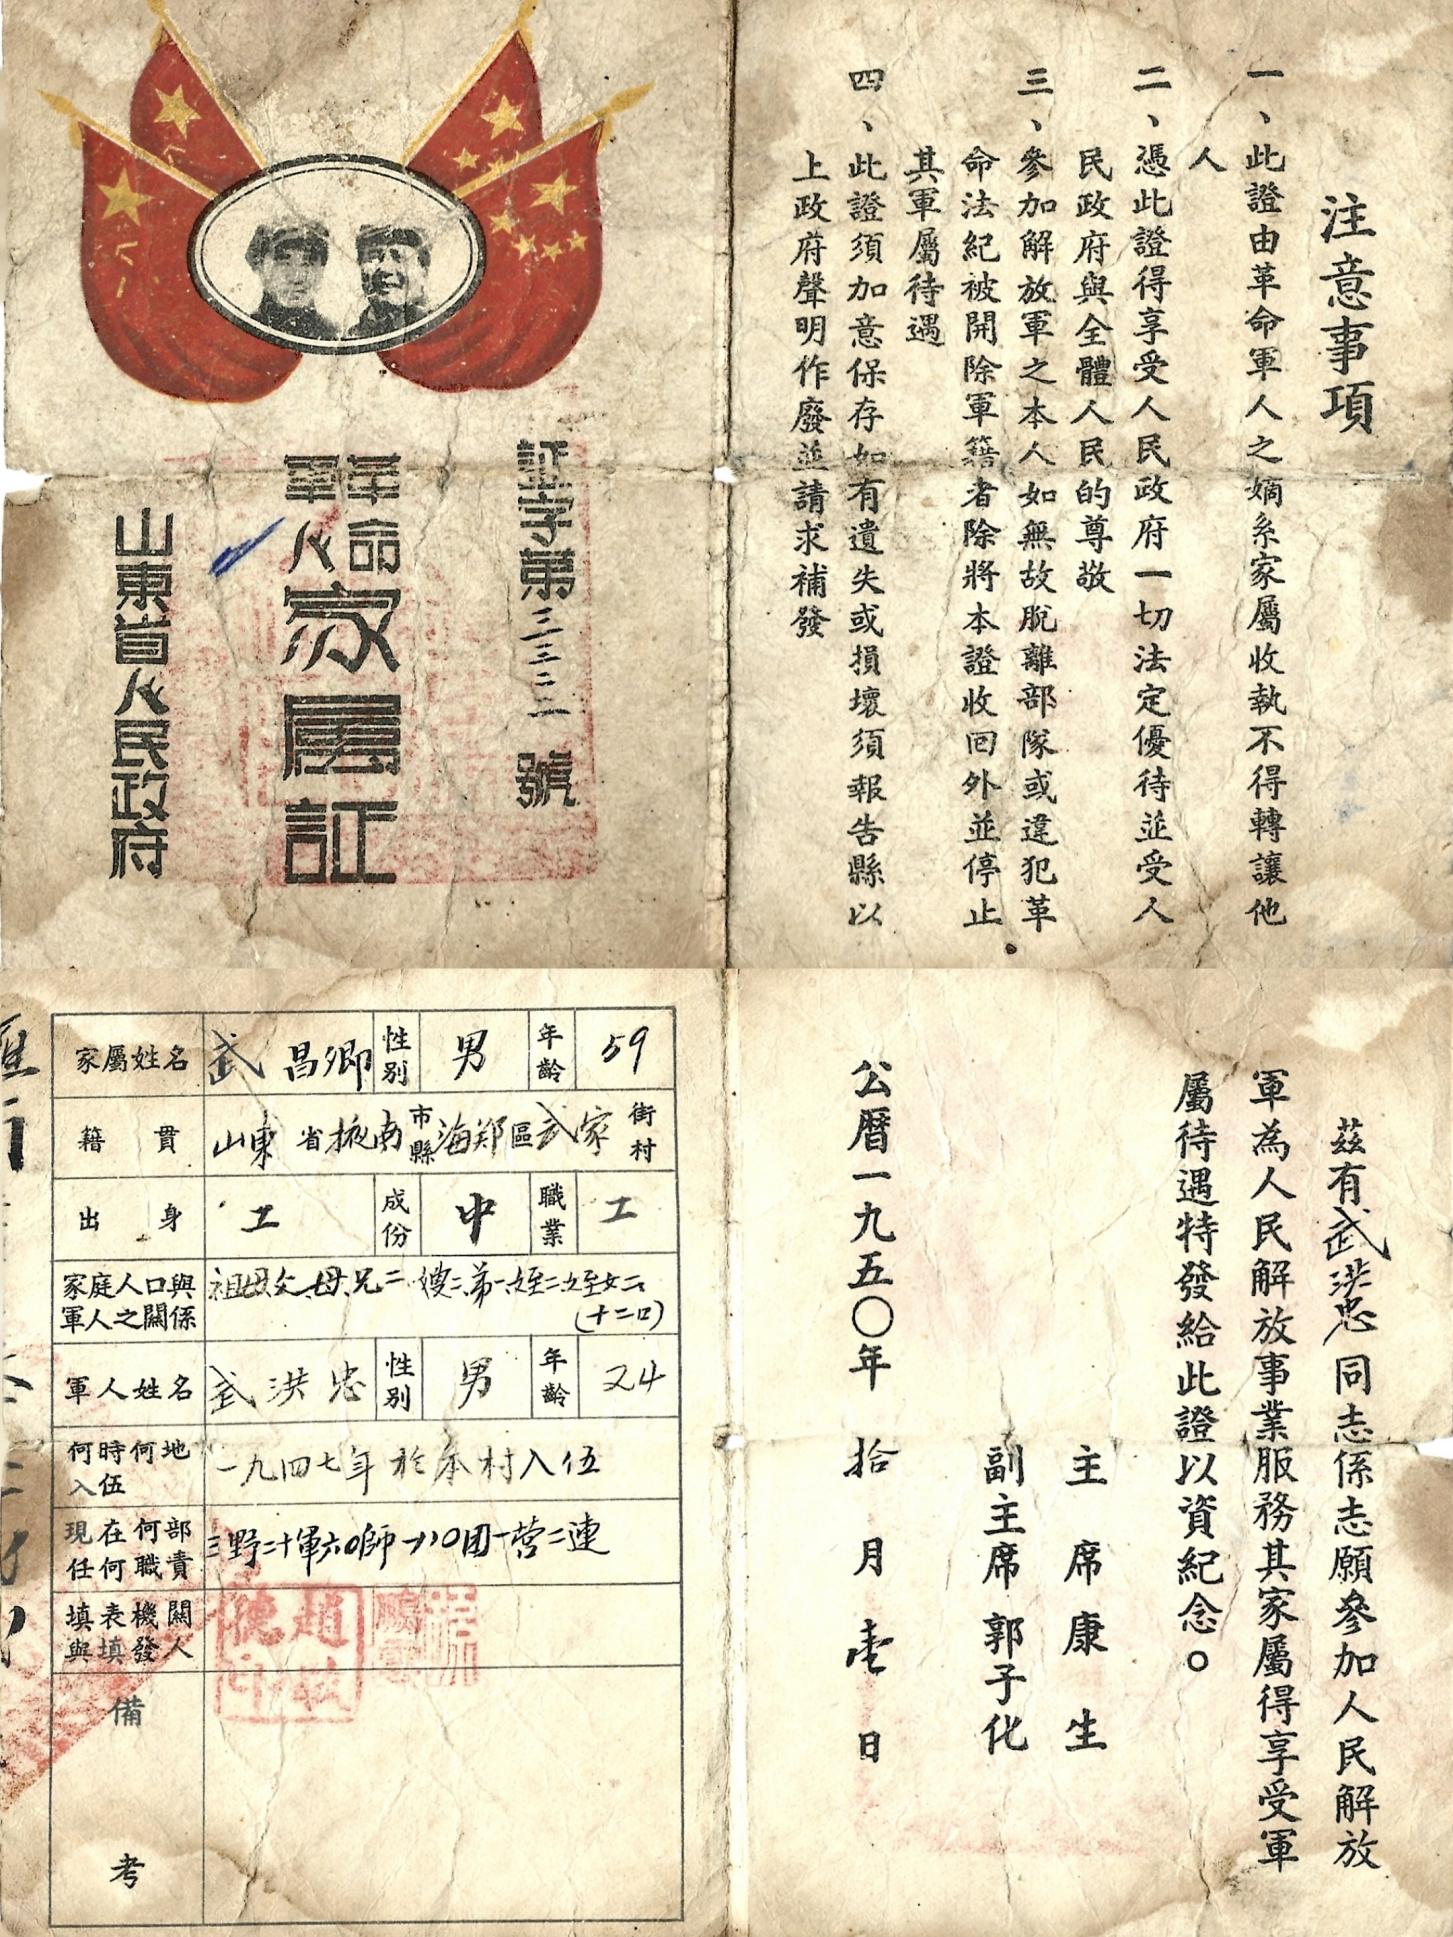 注意事項
一、此證由革命軍人之嫡系家屬收執不得轉讓他
人
二、憑此證得享受人民政府一切法定優待並受人
民政府與全體人民的尊敬
三、參加解放軍之本人如無故脫離部隊或違犯革
命法紀被開除軍籍者除將本證收回外並停止
其軍屬待遇
四、此證須加意保存如有遺失或損壞須報告縣以
上政府聲明作廢並請求補發
八一
八一
証字第三三二二號
革命
軍人
家屬証
山東省人民政府
茲有武洪忠同志係志願參加人民解放
軍為人民解放事業服務其家屬得享受軍
屬待遇特發給此證以資紀念。
主席康生
副主席郭子化
公曆一九五〇年拾月壹日
家屬姓名 武昌卿 性別 男 年齡 59
籍貫 山東省掖南市縣海郑區武家街村
出身 工 成份 中 職業 工
家庭人口與軍人之關係 祖母父母兄二嫂二弟一姪二姪女二
(十二口)
軍人姓名 武洪忠 性別 男 年齡 24
何時何地入伍 一九四七年於本村入伍
現在何部任何職責 三野二十軍六〇師一八〇团一营二連
填表機關與填發人
備考